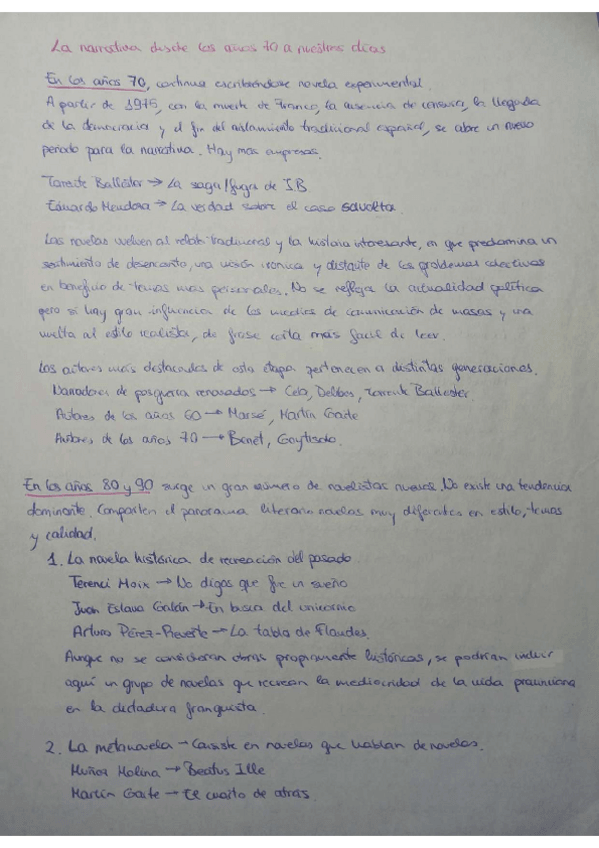 La narrativa desde los años 70 a nuestros días
En los años 70, continua escribiéndose novela experimental.
A partir de 1975, con la muerte de Franco, la ausencia de censura, la llegada
de la democracia y el fin del aislamiento tradicional español, se abre un nuevo
periodo para la narrativa. Hay más empresas.
Torrente Ballester → La saga/fuga de J.B
Eduardo Mendoza → La verdad sobre el caso Savolta.
Las novelas vuelven al relato tradicional y la historia interesante, en que predomina un
sentimiento de desencanto, una visión irónica y distante de los problemas colectivos
en beneficio de temas más personales. No se refleja la actualidad política
pero si hay gran influencia de los medios de comunicación de masas y una
vuelta al estilo realista, de frase corta más facil de leer.
Los autores más destacados de esta etapa pertenecen a distintas generaciones.
Narradores de posguerra renovados → Cela, Delibes, Torrente Ballester.
Autores de los años 60 → Marsé, Martín Gaite
Autores de los años 70 → Benet, Goytisolo.
En los años 80 y 90 surge un gran número de novelistas nuevos. No existe una tendencia
dominante. Comparten el panorama literario novelas muy diferentes en estilo, temas
y calidad.
1. La novela histórica de recreación del pasado
Terenci Moix → No digas que fue un sueño
Juan Eslava Galán → En busca del unicornio
Arturo Pérez-Reverte → La tabla de Flandes.
Aunque no se consideran obras propiamente históricas, se podrían incluir
aquí un grupo de novelas que recrean la mediocridad de la vida provinciana
en la dictadura franquista.
2. La metanovela → Consiste en novelas que hablan de novelas.
Muñoz Molina → Beatus Ille
Martín Gaite → El cuarto de atrás.